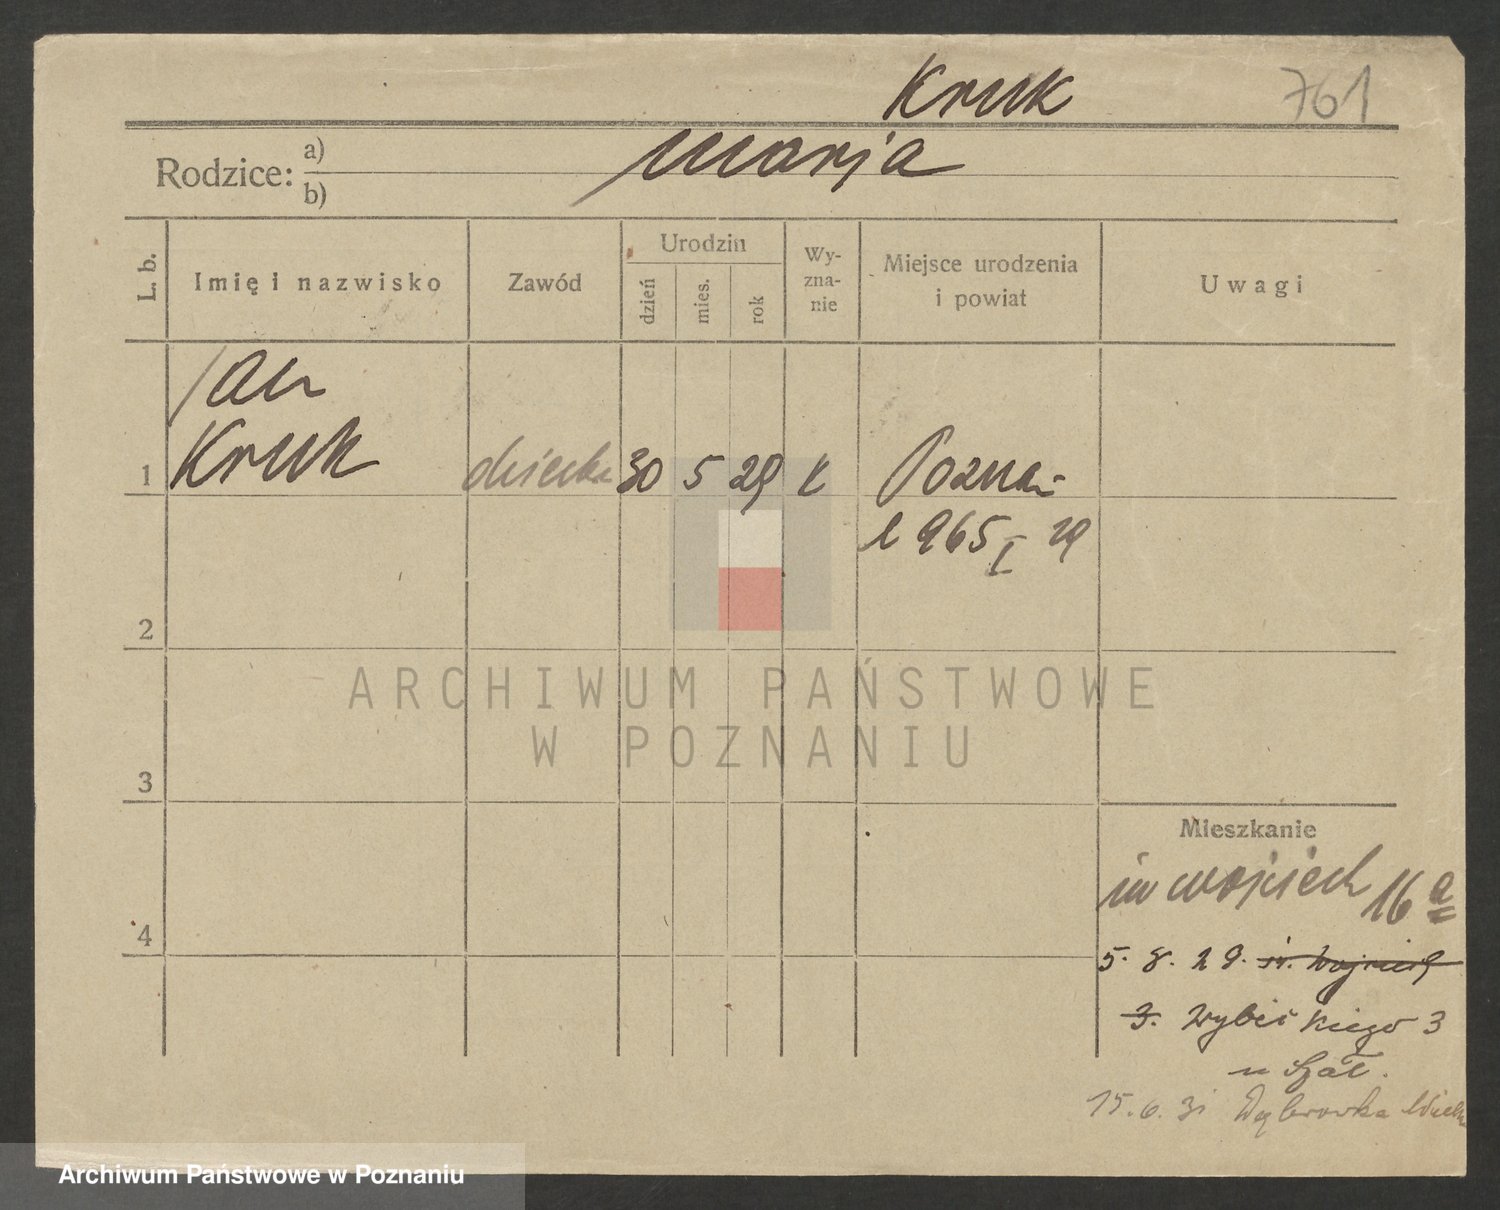 Kruk
761
Rodzice: a)
b)
Marja
L. b.
Imię i nazwisko
Zawód
Urodzin
dzień
mies.
rok
Wy-
zna-
nie
Miejsce urodzenia
i powiat
Uwagi
Jan
Kruk
1
dziecko 30 5 29 k Poznań
l 965 I 29
2
ARCHIWUM PAŃSTWOWE
W POZNANIU
3
Mieszkanie
św Wojciech 16 a
4
5. 8. 29. św. Wojciech
3. Wybickiego 3
u Szał.
15. 6. 31 Dąbrowka
Archiwum Państwowe w Poznaniu